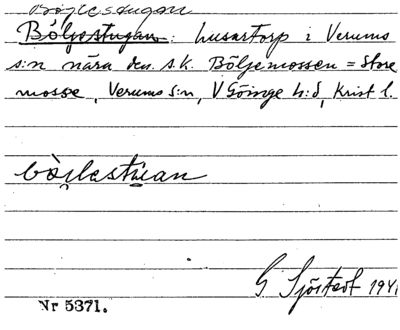 Böjlestugan
Böljestugan: husartorp i Verums
s:n nära den s.k. Böljemossen = Store
mosse, Verums s:n, V Göinge h:d, Krist l.
bò̤jlestu̳an
G Sjöstedt 1941
Nr 5371.